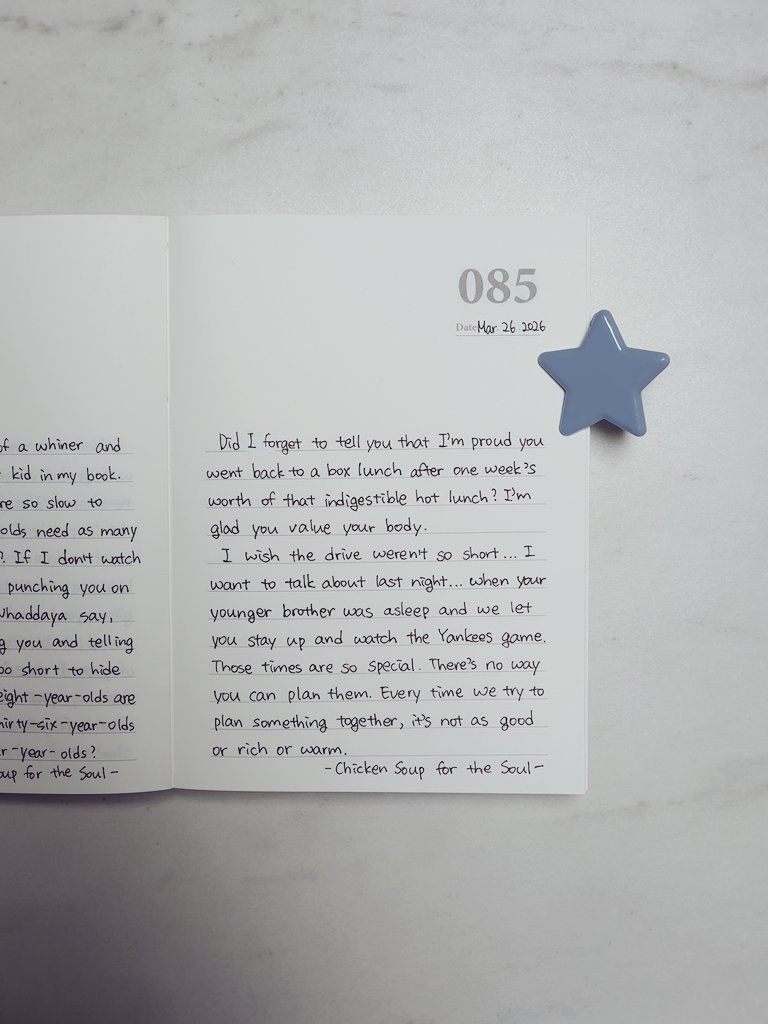 of a whiner and
kid in my book.
re so slow to
olds need as many
? If I don't watch
punching you on
Whaddaya say,
g you and telling
oo short to hide
eight-year-olds are
hirty-six-year-olds
r-year-olds?
oup for the Soul-
085
Date Mar. 26. 2026
Did I forget to tell you that I'm proud you
went back to a box lunch after one week's
worth of that indigestible hot lunch? I'm
glad you value your body.
I wish the drive weren't so short... I
want to talk about last night... when your
younger brother was asleep and we let
you stay up and watch the Yankees game.
Those times are so special. There's no way
you can plan them. Every time we try to
plan something together, it's not as good
or rich or warm.
-Chicken Soup for the Soul-